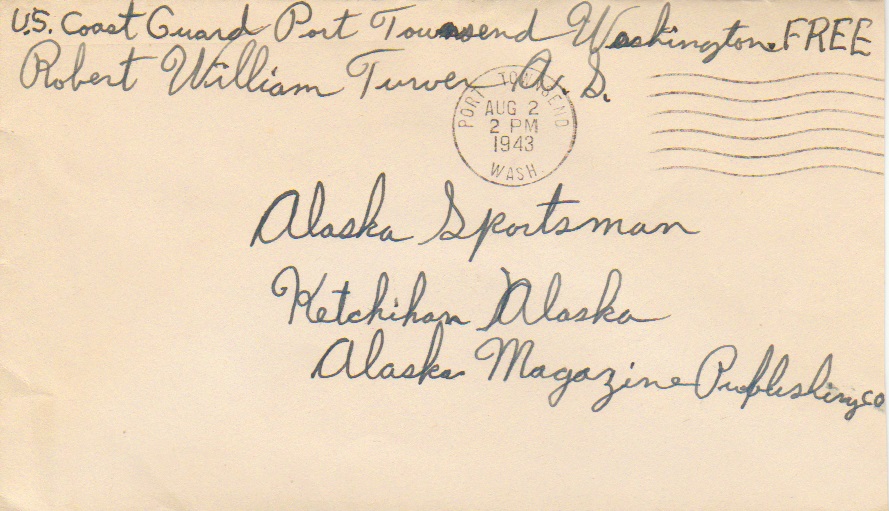 U.S. Coast Guard Port Townsend Washington. FREE
Robert William Turver A. S.
PORT TOWNSEND
AUG 2
2 PM
1943
WASH
Alaska Sportsman
Ketchikan Alaska
Alaska Magazine Publishing Co